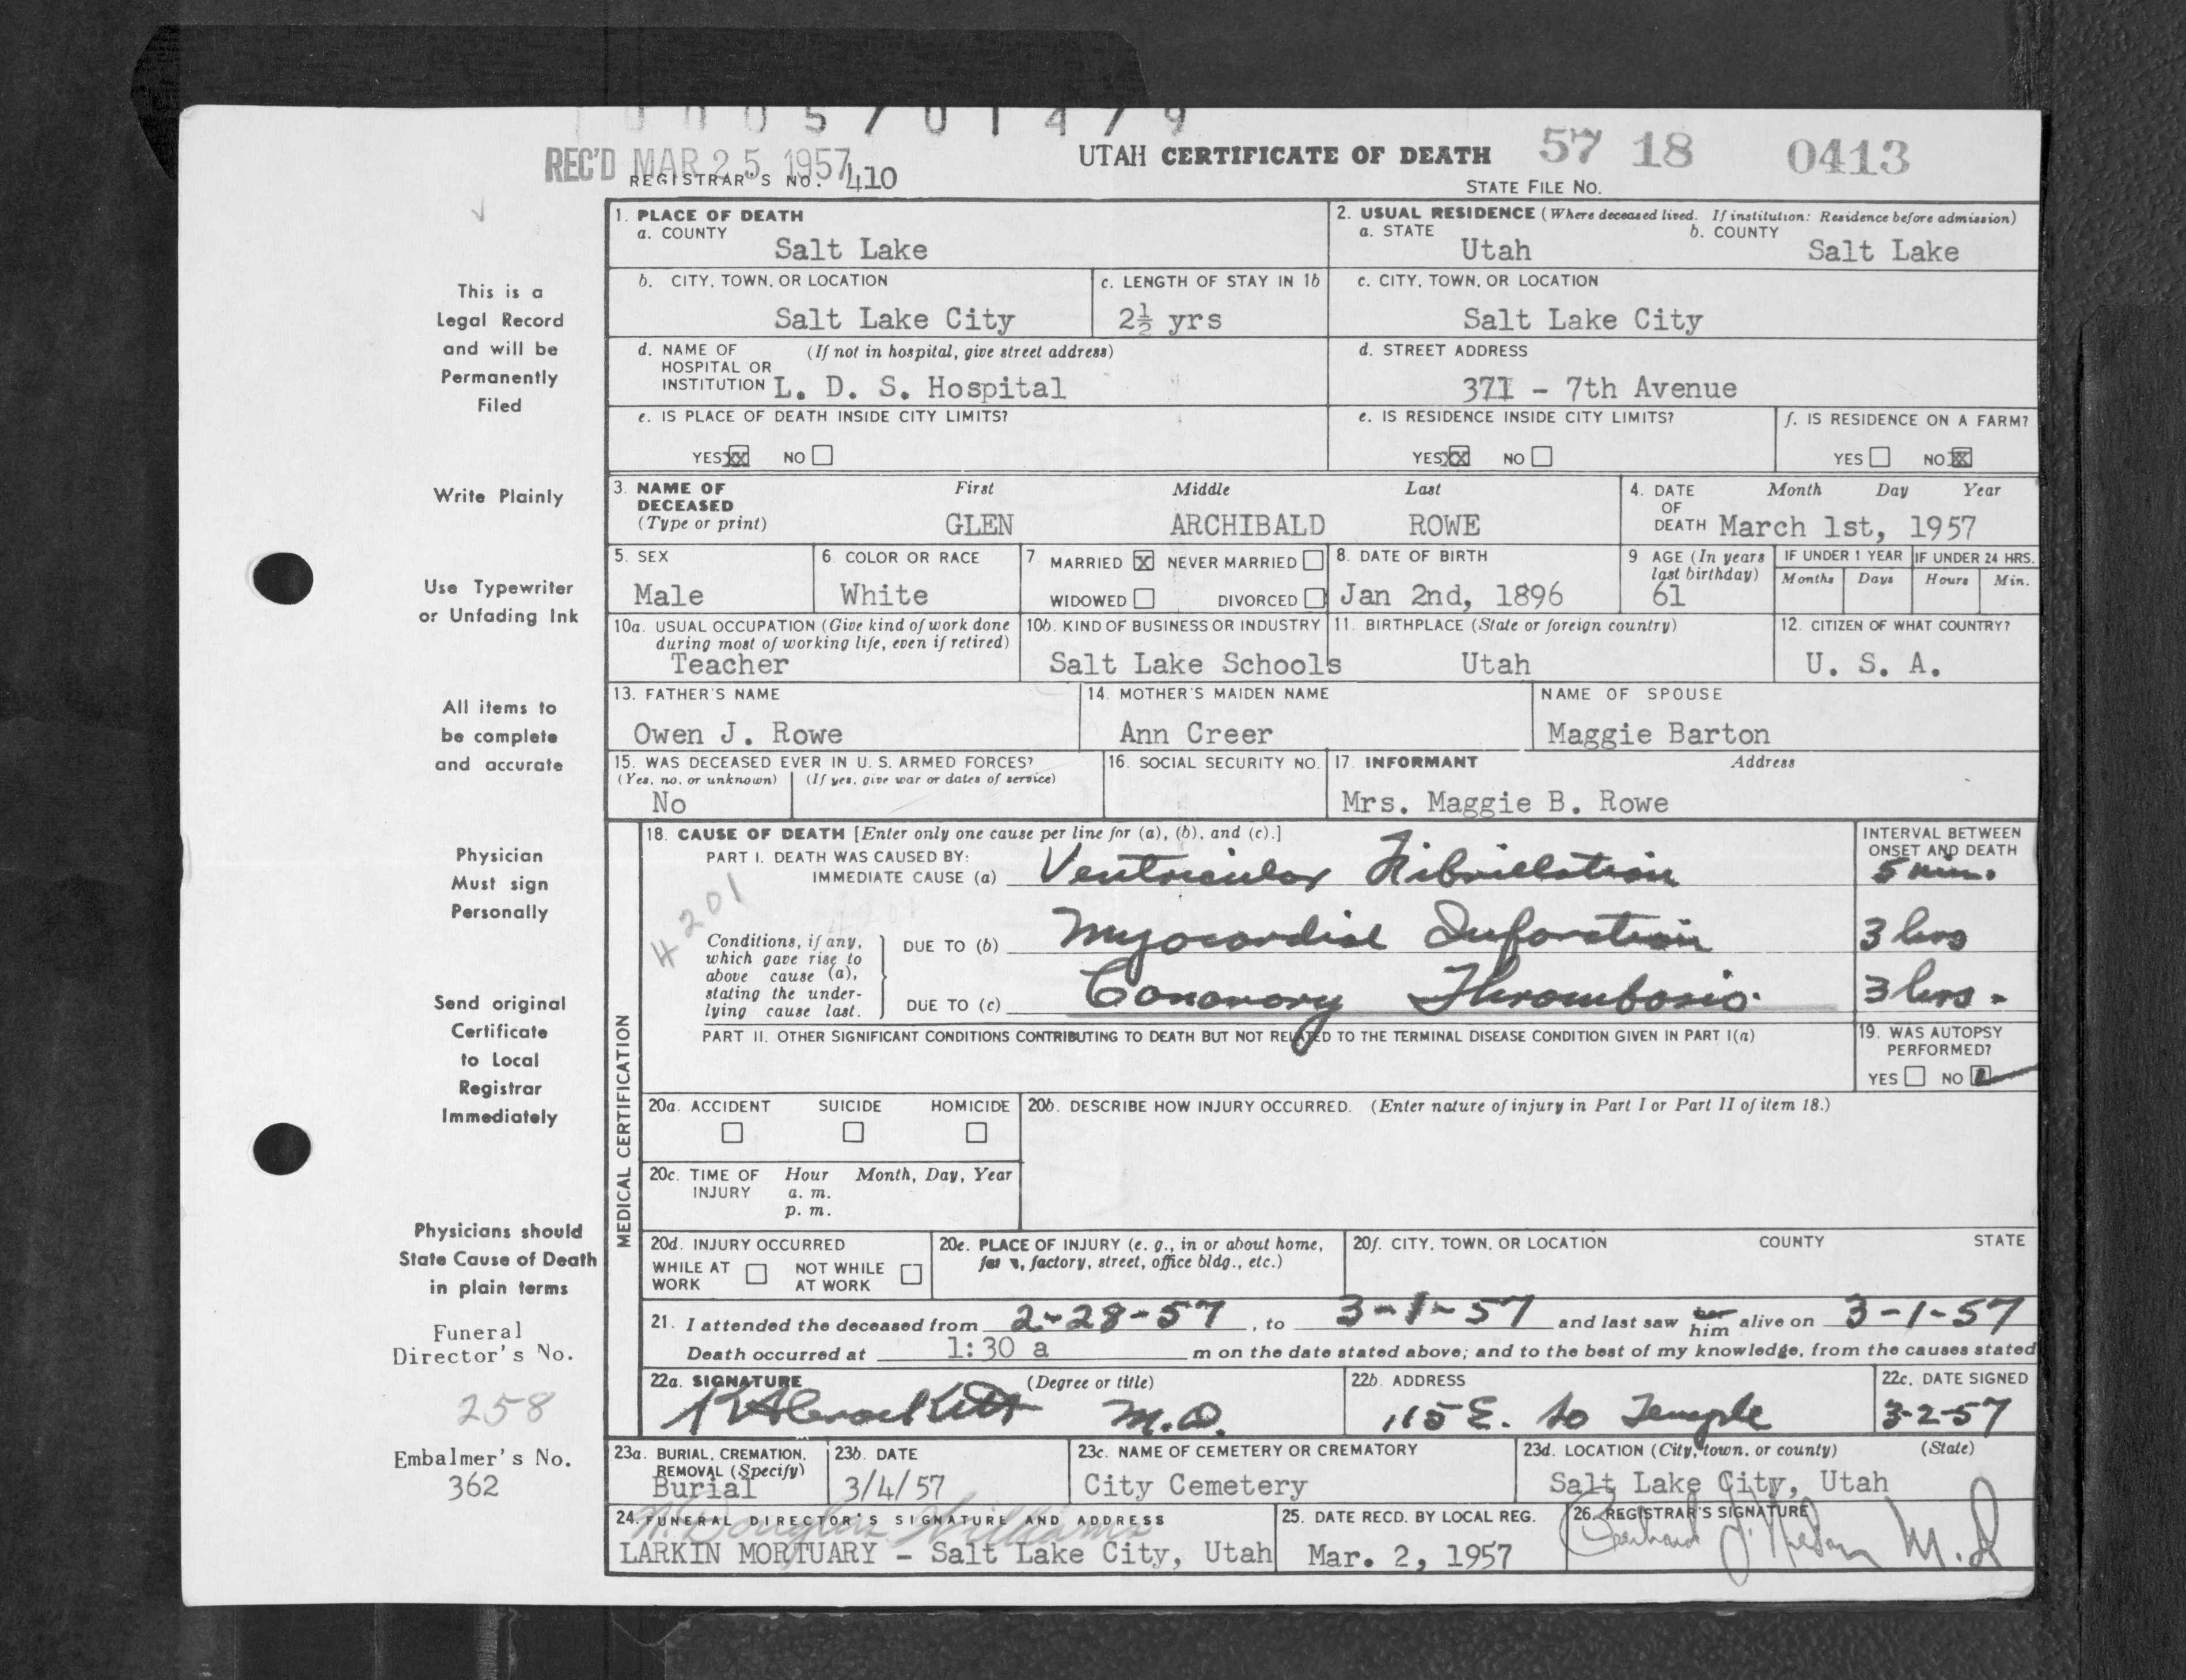 REC'D MAR 25 1957
REGISTRAR'S NO. 410
UTAH CERTIFICATE OF DEATH
57 18 0413
STATE FILE NO.
This is a
Legal Record
and will be
Permanently
Filed
Write Plainly
Use Typewriter
or Unfading Ink
All items to
be complete
and accurate
Physician
Must sign
Personally
Send original
Certificate
to Local
Registrar
Immediately
Physicians should
State Cause of Death
in plain terms
Funeral
Director's No.
258
Embalmer's No.
362
1. PLACE OF DEATH
a. COUNTY
Salt Lake
2. USUAL RESIDENCE (Where deceased lived. If institution: Residence before admission)
a. STATE b. COUNTY
Utah Salt Lake
b. CITY, TOWN, OR LOCATION
Salt Lake City
c. LENGTH OF STAY IN 1b
2½ yrs
c. CITY, TOWN, OR LOCATION
Salt Lake City
d. NAME OF (If not in hospital, give street address)
HOSPITAL OR
INSTITUTION L. D. S. Hospital
d. STREET ADDRESS
371 - 7th Avenue
e. IS PLACE OF DEATH INSIDE CITY LIMITS?
YES XX NO
e. IS RESIDENCE INSIDE CITY LIMITS?
YES XX NO
f. IS RESIDENCE ON A FARM?
YES NO X
3. NAME OF First Middle Last
DECEASED
(Type or print) GLEN ARCHIBALD ROWE
4. DATE Month Day Year
OF
DEATH March 1st, 1957
5. SEX
Male
6. COLOR OR RACE
White
7. MARRIED X NEVER MARRIED
WIDOWED DIVORCED
8. DATE OF BIRTH
Jan 2nd, 1896
9 AGE (In years
last birthday)
61
IF UNDER 1 YEAR
Months Days
IF UNDER 24 HRS.
Hours Min.
10a. USUAL OCCUPATION (Give kind of work done
during most of working life, even if retired)
Teacher
10b. KIND OF BUSINESS OR INDUSTRY
Salt Lake Schools
11. BIRTHPLACE (State or foreign country)
Utah
12. CITIZEN OF WHAT COUNTRY?
U. S. A.
13. FATHER'S NAME
Owen J. Rowe
14. MOTHER'S MAIDEN NAME
Ann Creer
NAME OF SPOUSE
Maggie Barton
15. WAS DECEASED EVER IN U. S. ARMED FORCES?
(Yes, no, or unknown) (If yes, give war or dates of service)
No
16. SOCIAL SECURITY NO.
17. INFORMANT Address
Mrs. Maggie B. Rowe
MEDICAL CERTIFICATION
18. CAUSE OF DEATH [Enter only one cause per line for (a), (b), and (c).]
PART I. DEATH WAS CAUSED BY:
IMMEDIATE CAUSE (a) Ventricular Fibrillation
INTERVAL BETWEEN
ONSET AND DEATH
5 min.
4201
Conditions, if any,
which gave rise to
above cause (a),
stating the under-
lying cause last.
DUE TO (b) Myocardial Infarction 3 hrs
DUE TO (c) Coronary Thrombosis. 3 hrs.
PART II. OTHER SIGNIFICANT CONDITIONS CONTRIBUTING TO DEATH BUT NOT RELATED TO THE TERMINAL DISEASE CONDITION GIVEN IN PART I(a)
19. WAS AUTOPSY
PERFORMED?
YES NO
20a. ACCIDENT SUICIDE HOMICIDE
20b. DESCRIBE HOW INJURY OCCURRED. (Enter nature of injury in Part I or Part II of item 18.)
20c. TIME OF Hour Month, Day, Year
INJURY a. m.
p. m.
20d. INJURY OCCURRED
WHILE AT NOT WHILE
WORK AT WORK
20e. PLACE OF INJURY (e. g., in or about home,
factory, street, office bldg., etc.)
20f. CITY, TOWN, OR LOCATION COUNTY STATE
21. I attended the deceased from 2-28-57, to 3-1-57 and last saw her him alive on 3-1-57
Death occurred at 1:30 a m on the date stated above; and to the best of my knowledge, from the causes stated
22a. SIGNATURE (Degree or title)
M.D.
22b. ADDRESS
115 E. So Temple
22c. DATE SIGNED
3-2-57
23a. BURIAL, CREMATION,
REMOVAL (Specify)
Burial
23b. DATE
3/4/57
23c. NAME OF CEMETERY OR CREMATORY
City Cemetery
23d. LOCATION (City, town, or county) (State)
Salt Lake City, Utah
24. FUNERAL DIRECTOR'S SIGNATURE AND ADDRESS
W. Douglas Williams
LARKIN MORTUARY - Salt Lake City, Utah
25. DATE RECD. BY LOCAL REG.
Mar. 2, 1957
26. REGISTRAR'S SIGNATURE
M.D